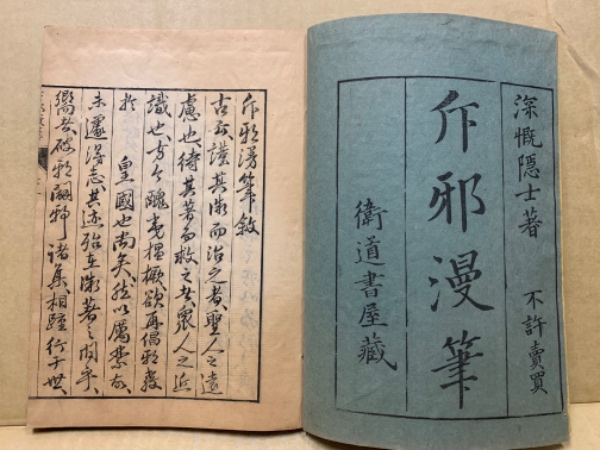 深慨隠士著 不許賣買
斥邪漫筆
衛道書屋藏
斥邪漫筆敘
古云謹其微而治之者聖人之遠
慮也待其著而救之者衆人之近
識也方今醜夷猖獗欲再倡邪教
於 皇國也尚矣然以厲禁故
未遽得志其迹殆在微著之間乎
嚮者破邪闢邪諸集相踵行于世